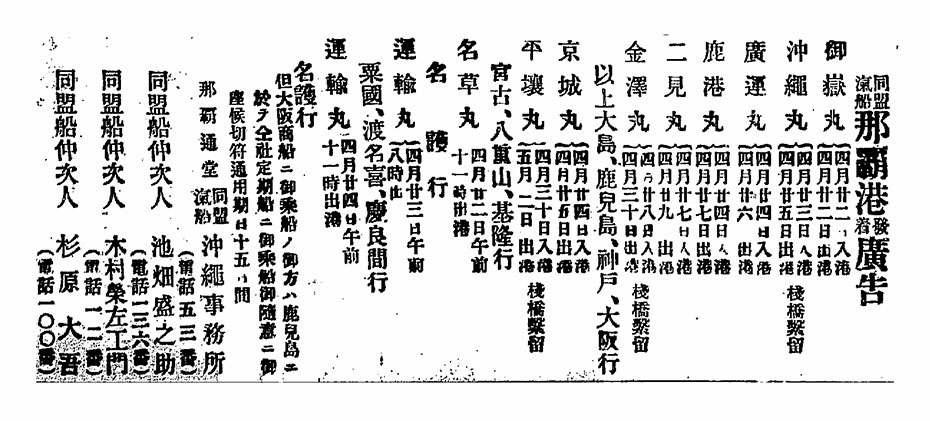 同盟汽船 那覇港 發着 廣告
御嶽丸 四月廿二日入港
四月廿二日出港
沖繩丸 四月廿三日入港
四月廿五日出港 棧橋繫留
廣運丸 四月廿四日入港
四月廿六 出港
鹿港丸 四月廿七日出港
二見丸 四月廿七日入港
四月廿九 出港
金澤丸 四月廿八日入港
四月三十日出港 棧橋繫留
以上大島、鹿兒島、神戸、大阪行
京城丸 四月廿四日入港
四月廿五日出港
平壤丸 四月三十日入港
五月 二日出港 棧橋繫留
宮古、八重山、基隆行
名草丸 四月廿二日午前
十一時出港
名護行
運輸丸 四月廿三日午前
八時出
粟國、渡名喜、慶良間行
運輸丸 四月廿四日午前
十一時出港
名護行
但大阪商船ニ御乘船ノ御方ハ鹿兒島ニ
於テ仝社定期船ニ御乘船御隨意ニ御
座候切符通用期日十五日間
那覇通堂 同盟汽船 沖繩事務所
(電話五三番)
同盟船仲次人 池畑盛之助
(電話一三六番)
同盟船仲次人 木村榮左工門
(電話一二番)
同盟船仲次人 杉原大吾
(電話一〇〇番)